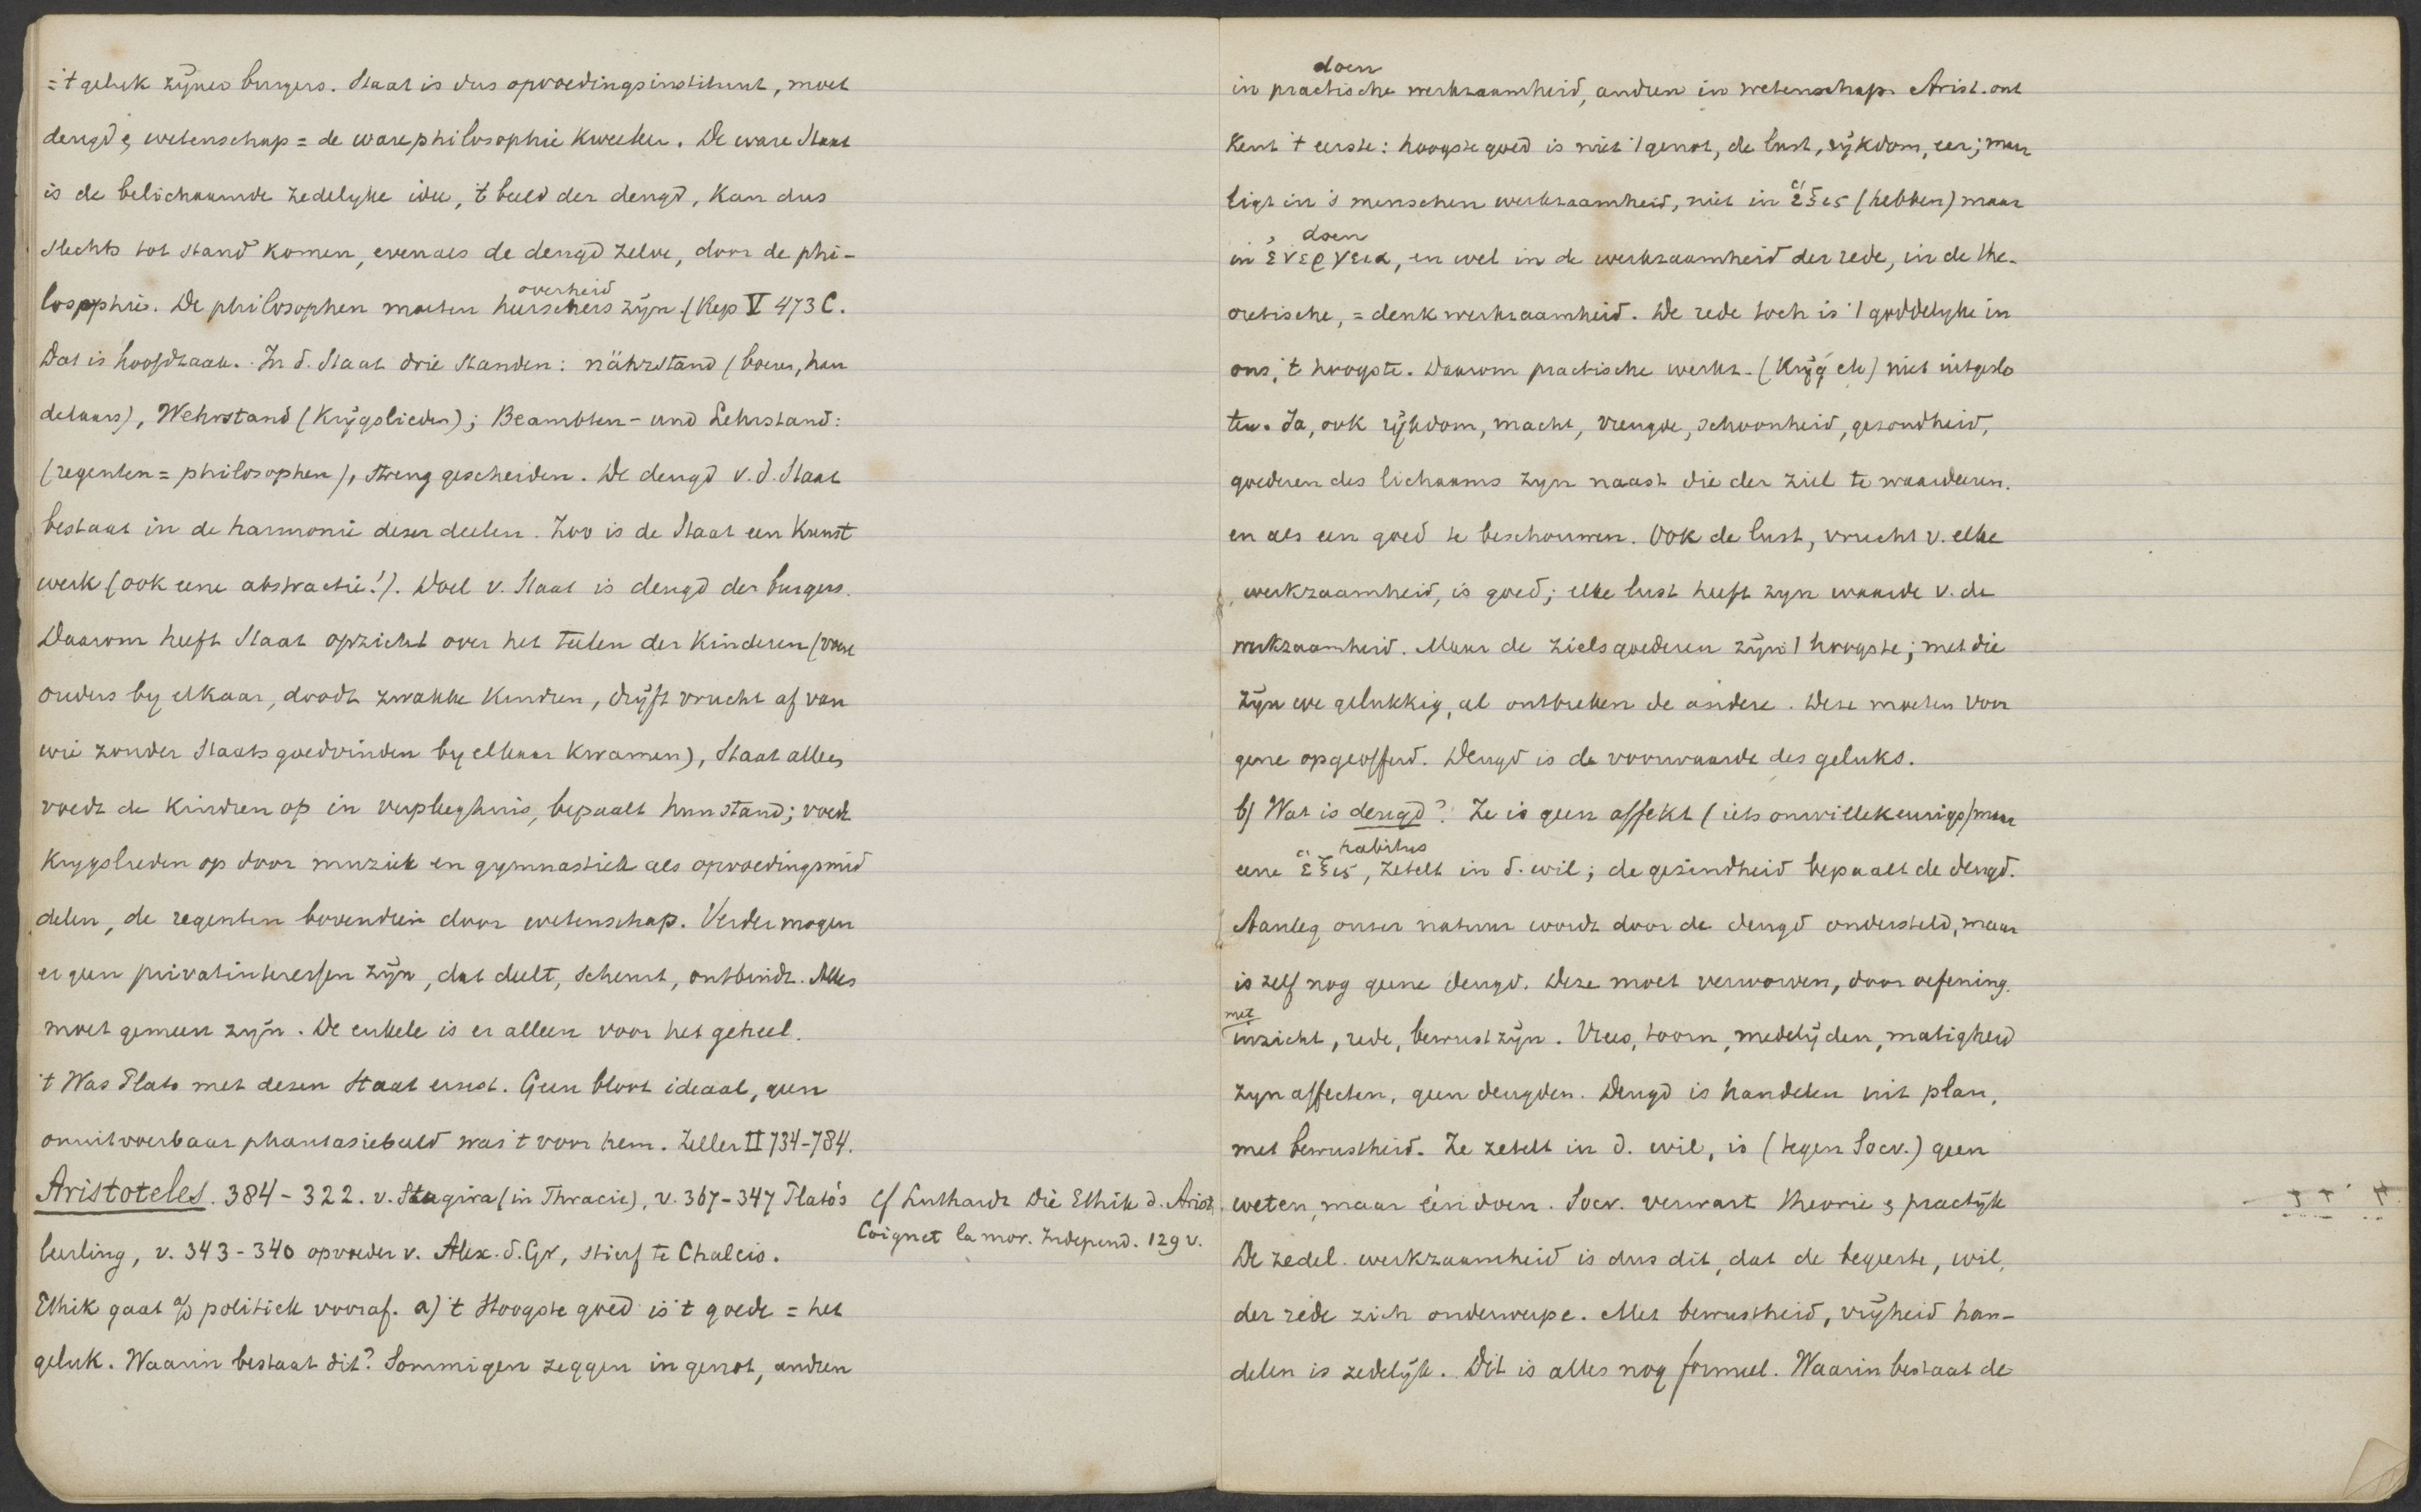 = 't geluk zijner burgers. Staat is dus opvoedingsinstituut, moet
deugd & wetenschap = de ware philosophie kweeken. De ware Staat
is de belichaamde zedelyke idee, 't beeld der deugd, kan dus
slechts tot stand komen, evenals de deugd zelve, door de phi-
losophie. De philosophen moeten heerschers zijn. (Rep V 473 C.
overheid
Dat is hoofdzaak. In d. Staat drie standen: nährstand (boeren, han
delaars), Wehrstand (Krijgslieden); Beambten- und Lehrstand:
(regenten = philosophen), streng gescheiden. De deugd v. d. Staat
bestaat in de harmonie dezer deelen. Zoo is de Staat een Kunst
werk (ook eene abstractie!). Doel v. Staat is deugd der burgers.
Daarom heeft Staat opzicht over het telen der Kinderen (
ouders by elkaar, doodt zwakke Kindren, drijft vrucht af van
wie zonder Staatsgoedvinden by elkaar kwamen), Staat alleen
voedt de Kindren op in verpleeghuis, bepaalt hun stand; voedt
Krygslieden op door muziek en gymnastiek als opvoedingsmid
delen, de regenten bovendien door wetenschap. Verder mogen
er geen privatinteressen zijn, dat deelt, scheurt, ontbindt. Alles
moet gemeen zijn. De enkele is er alleen voor het geheel.
't Was Plato met dezen Staat ernst. Geen bloot ideaal, geen
onuitvoerbaar phantasiebeeld was 't voor hem. Zeller II 734-784.
Aristoteles. 384-322. v. Stagira (in Thracië), v. 367-347 Plato's
leerling, v. 343-340 opvoeder v. Alex. d. Gr, stierf te Chalcis.
Ethik gaat a/d politiek vooraf. a) 't Hoogste goed is 't goede = het
geluk. Waarin bestaat dit? Sommigen zeggen in genot, andren
cf Luthardt Die Ethik d. Arist.
Coignet la mor. Independ. 129 v.
doen
in practische werkzaamheid, andren in wetenschap. Arist. ont
kent 't eerste: hoogste goed is niet 't genot, de lust, rijkdom, eer; maar
ligt in 's menschen werkzaamheid, niet in ἕξις (hebben) maar
doen
in ἐνεργεια, en wel in de werkzaamheid der rede, in de the-
oretische, = denkwerkzaamheid. De rede toch is 't goddelyke in
ons, 't hoogste. Daarom practische werkz. (Krijg etc) niet uitgeslo
ten. Ja, ook rijkdom, macht, vreugde, schoonheid, gezondheid,
goederen des lichaams zyn naast die der ziel te waardeeren.
en als een goed te beschouwen. Ook de lust, vrucht v. elke
werkzaamheid, is goed; elke lust heeft zyn waarde v. de
werkzaamheid. Maar de zielsgoederen zijn 't hoogste; met die
zijn we gelukkig, al ontbreken de andere. Deze moeten voor
gene opgeofferd. Deugd is de voorwaarde des geluks.
b) Wat is deugd? Ze is geen affekt (iets onwillekeurigs) maar
habitus
eene ἕξις, zetelt in d. wil; de gezindheid bepaalt de deugd.
Aanleg onzer natuur wordt door de deugd ondersteld, maar
is zelf nog geene deugd. Deze moet verworven, door oefening.
met
inzicht, rede, bewustzijn. Vrees, toorn, medelijden, matigheid
zyn affecten, geen deugden. Deugd is handelen uit plan,
met bewustheid. Ze zetelt in d. wil, is (tegen Socr.) geen
weten, maar een doen. Socr. verwart theorie & practijk
De zedel. werkzaamheid is dus dit, dat de begeerte, wil,
der rede zich onderwerpe. Met bewustheid, vrijheid han-
delen is zedelijk. Dit is alles nog formeel. Waarin bestaat de